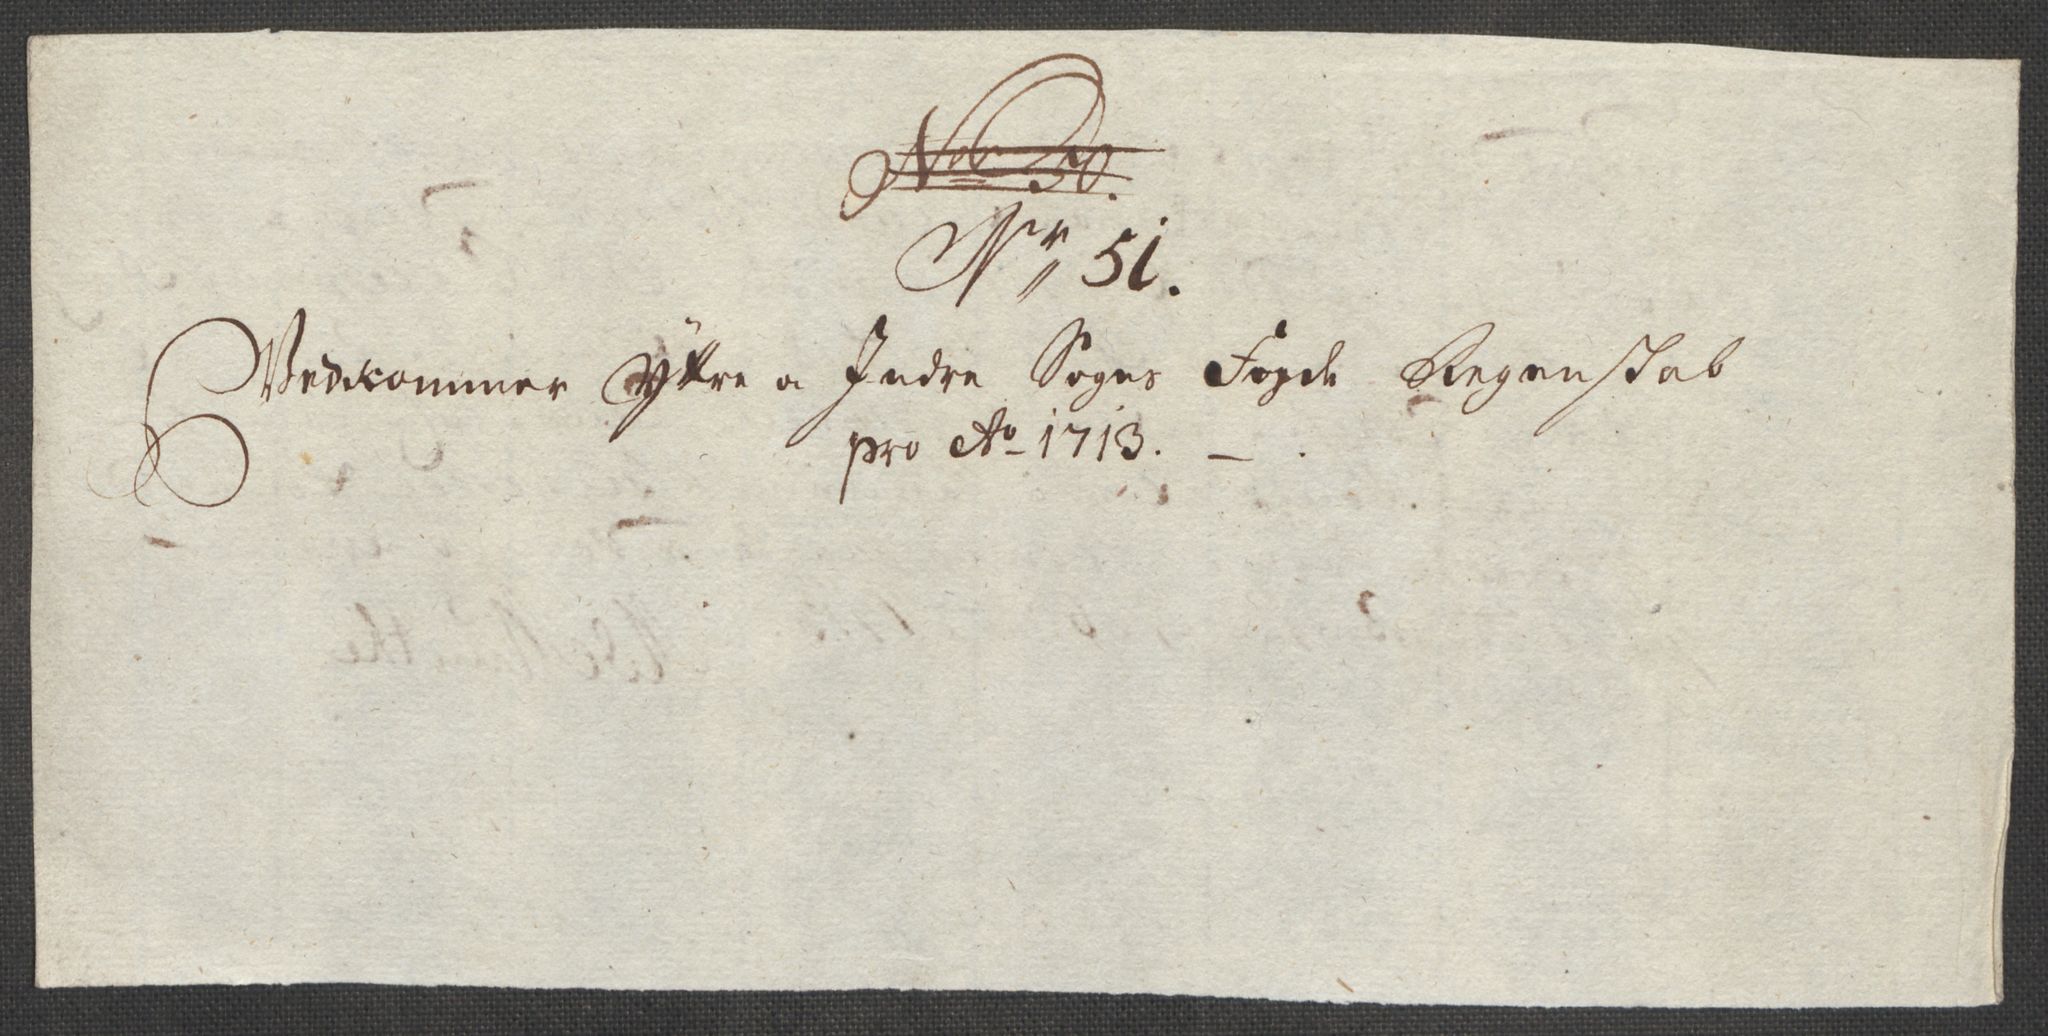 No 50.
Nr 51.
Vedkommer Yttre o Indre Sogns Fogde Regenskab
pro Ao 1713.